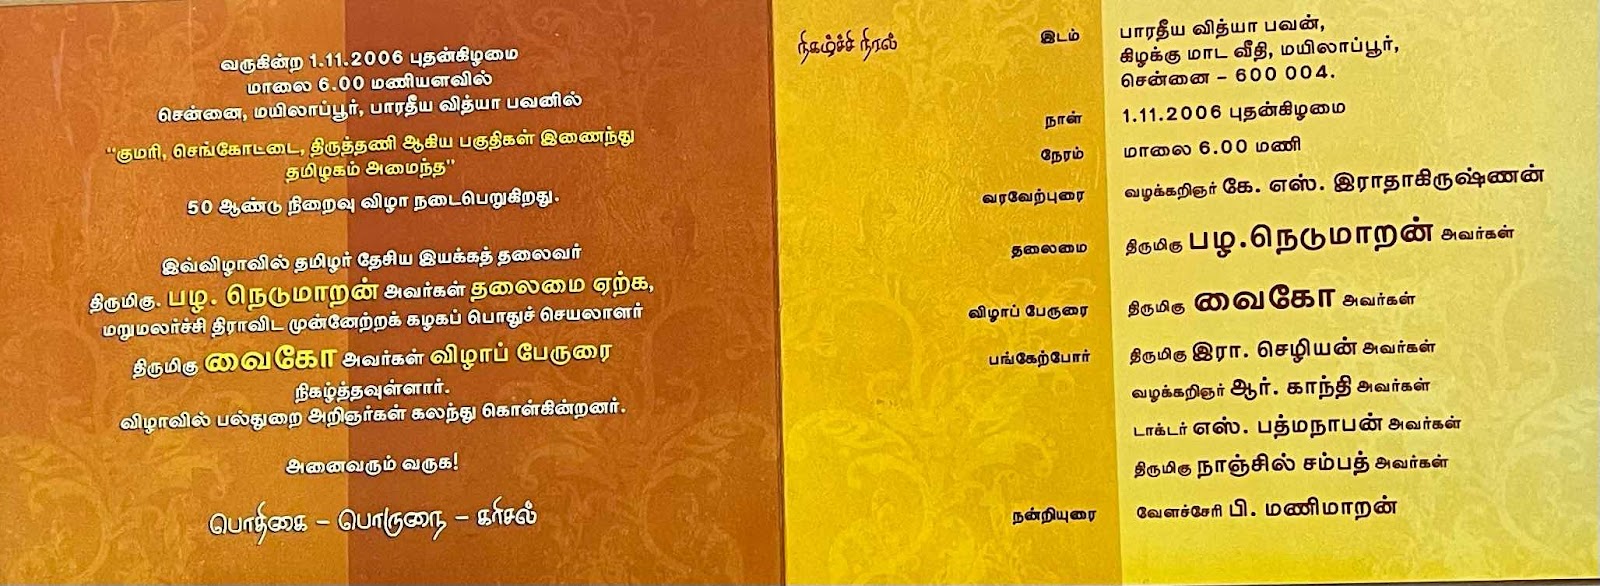 வருகின்ற 1.11.2006 புதன்கிழமை
மாலை 6.00 மணியளவில்
சென்னை, மயிலாப்பூர், பாரதீய வித்யா பவனில்
“குமரி, செங்கோட்டை, திருத்தணி ஆகிய பகுதிகள் இணைந்து
தமிழகம் அமைந்த”
50 ஆண்டு நிறைவு விழா நடைபெறுகிறது.
இவ்விழாவில் தமிழர் தேசிய இயக்கத் தலைவர்
திருமிகு. பழ. நெடுமாறன் அவர்கள் தலைமை ஏற்க,
மறுமலர்ச்சி திராவிட முன்னேற்றக் கழகப் பொதுச் செயலாளர்
திருமிகு வைகோ அவர்கள் விழாப் பேருரை
நிகழ்த்தவுள்ளார்.
விழாவில் பல்துறை அறிஞர்கள் கலந்து கொள்கின்றனர்.
அனைவரும் வருக!
பொதிகை – பொருநை – கரிசல்
நிகழ்ச்சி நிரல்
இடம் பாரதீய வித்யா பவன்,
கிழக்கு மாட வீதி, மயிலாப்பூர்,
சென்னை – 600 004.
நாள் 1.11.2006 புதன்கிழமை
நேரம் மாலை 6.00 மணி
வரவேற்புரை வழக்கறிஞர் கே. எஸ். இராதாகிருஷ்ணன்
தலைமை திருமிகு பழ.நெடுமாறன் அவர்கள்
விழாப் பேருரை திருமிகு வைகோ அவர்கள்
பங்கேற்போர் திருமிகு இரா. செழியன் அவர்கள்
வழக்கறிஞர் ஆர். காந்தி அவர்கள்
டாக்டர் எஸ். பத்மநாபன் அவர்கள்
திருமிகு நாஞ்சில் சம்பத் அவர்கள்
நன்றியுரை வேளச்சேரி பி. மணிமாறன்